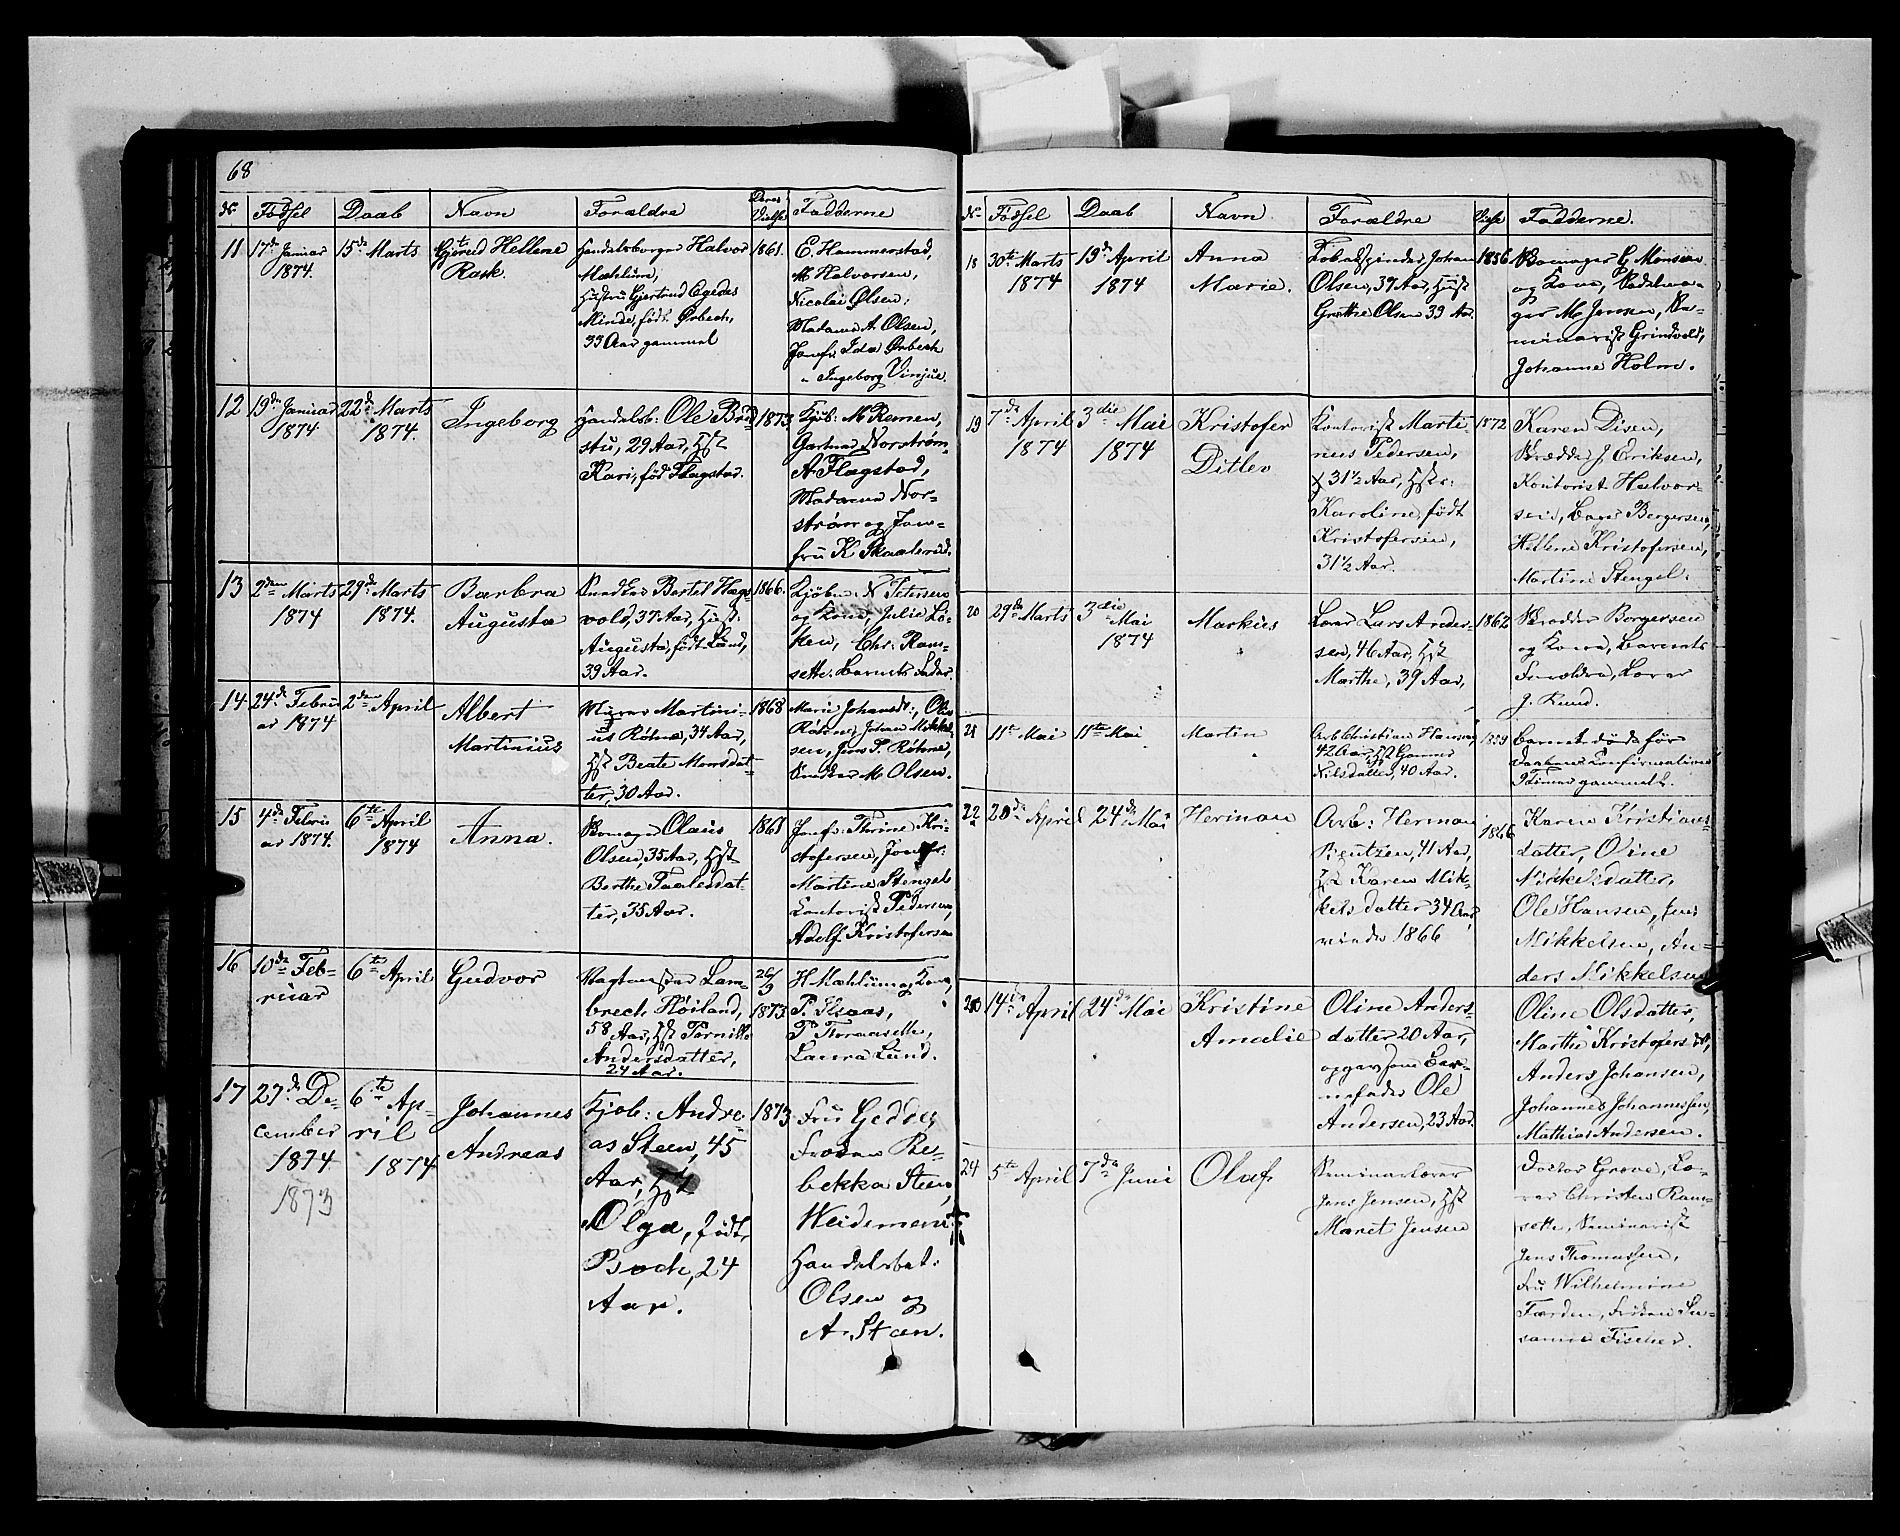 68
No Fødsel Daab Navn Forældre Deres Vielse Fadderne
11 17de Januar 1874. 15de Marts Gjerted Hellene Rask.
Handelsborger Halvor
Mæhlum,
Hustru Gjertrud Egedes
Minde, født Ørbech,
33 Aar gammel
1861.
E. Hammerstad,
M. Halvorsen,
Nicolai Olsen,
Madame A. Olsen,
Jomfr. Ida Ørbech
" Ingeborg Vinjue.
12 19de Januar 1874 22de Marts 1874. Ingeborg
Handelsb: Ole Brø-
stu, 29 Aar, Hst
Kari, født Flagstad.
1873.
Kjøb: M. Remen,
Gartner Norstrøm,
A. Flagstad,
Madame Nor-
strøm og Jom-
fru K. Skaalerud.
13 2den Marts 1874 29de Marts 1874. Barbra Augusta
Snedker Bertel Hægs-
vold, 37 Aar, Hust.
Augusta, født Lund,
39 Aar.
1866.
Kjøbm. N. Petersen
og Kone, Julie Lø-
ken, Chr. Ram-
sette. Barnets Fader.
14 24de Februar 1874 2den April Albert Martinius
Murer Martini-
us Røhne, 34 Aar,
Hst Beate Monsdat-
ter, 30 Aar.
1868
Marie Johansdr:, Ole
Røhne, Johan Mikkel-
sen, Jens P. Røhne,
Snedker M. Olsen.
15 4de Februar 1874. 6te April 1874 Anna.
Bomager Olaus
Olsen, 35 Aar, Hst
Berthe Paalesdat-
ter, 35 Aar.
1861
Jomfr: Thrine Kri-
stofersen, Jomfr:
Martine Stengel
Kontorist Pedersen,
Adolf Kristofersen
16 10de Februar 6te April Gudvor
Vagtmester Lam-
brecht Høiland,
58 Aar, Hst Pernille
Andersdatter,
24 Aar.
26/9 1873
H. Mæhlum og Kone,
P. Ilsaas,
P. Foraasette,
Laura Lund.
17 27de December 1874 1873 6te April 1874 Johannes Andreas
Kjøb: Andre-
as Steen, 45
Aar, Hst
Olga, født
Boch, 24
Aar.
1873
Fru Gedde,
Frøken Re-
bekka Steen,
Weidemann,
Handelsbet:
Olsen og
A. Steen.
No Fødsel Daab Navn Forældre Vielse Fadderne.
18 30te Marts 1874 19de April 1874 Anna Marie.
Tobakspinder Johan
Olsen, 37 Aar, Hust
Grethe Olsen 39 Aar.
1856
Bomager G. Monsen
og Kone, Sadelma-
ger M. Jensen, Se-
minarist Grindvold,
Johanne Holm.
19 7de April 1874 3die Mai 1874 Kristofer Ditlev
Kontorist Marti-
nus Pedersen,
31½ Aar, Hst:
Karoline, født
Kristofersen,
31½ Aar.
1872
Karen Disen,
J. Eriksen,
Kontorist Halvor-
sen, Bergersen,
Hellene Kristofersen,
Martine Stengel.
20 29de Marts 3die Mai 1874 Markus
Lars Ander-
sen, 46 Aar, Hst
Marthe, 39 Aar,
1862
Borgersen
og Kone, Barnets
Forældre,
J. Rund.
21 11te Mai 11te Mai Martin
Arb Christian Hansen,
42 Aar, Hst Gunner
Nilsdatter, 40 Aar.
1859
Barnet døde før
Daabens Konfirmation
9 Timer gammelt.
22 20de April 24de Mai Herman
Arb: Herman
41 Aar,
Hst Karen Mik-
kelsdatter 34 Aar
viede 1866
1866
Karen Kristians-
datter, Oline
Mikkelsdatter,
Ole Hansen, Jens
Mikkelsen, An-
ders Mikkelsen
14de April 24de Mai Kristine Amalie
Oline Anders-
datter 20 Aar,
opgav som Bar-
nefader Ole
Andersen, 23 Aar.
Oline Olsdatter,
Marthe Kristofersdr,
Anders Johansen,
Johannes Johannessen,
Mathias Andersen.
24 5te April 7de Juni Olaf
Seminarlærer
Jens Jensen, Hst
Maret Jensen
Doctor Greve, Læ-
rer Christen Ram-
sette, Seminarist
Jens Thomassen,
Fru Wilhelmine
Færden, Frøken Su-
sanne Fischer.